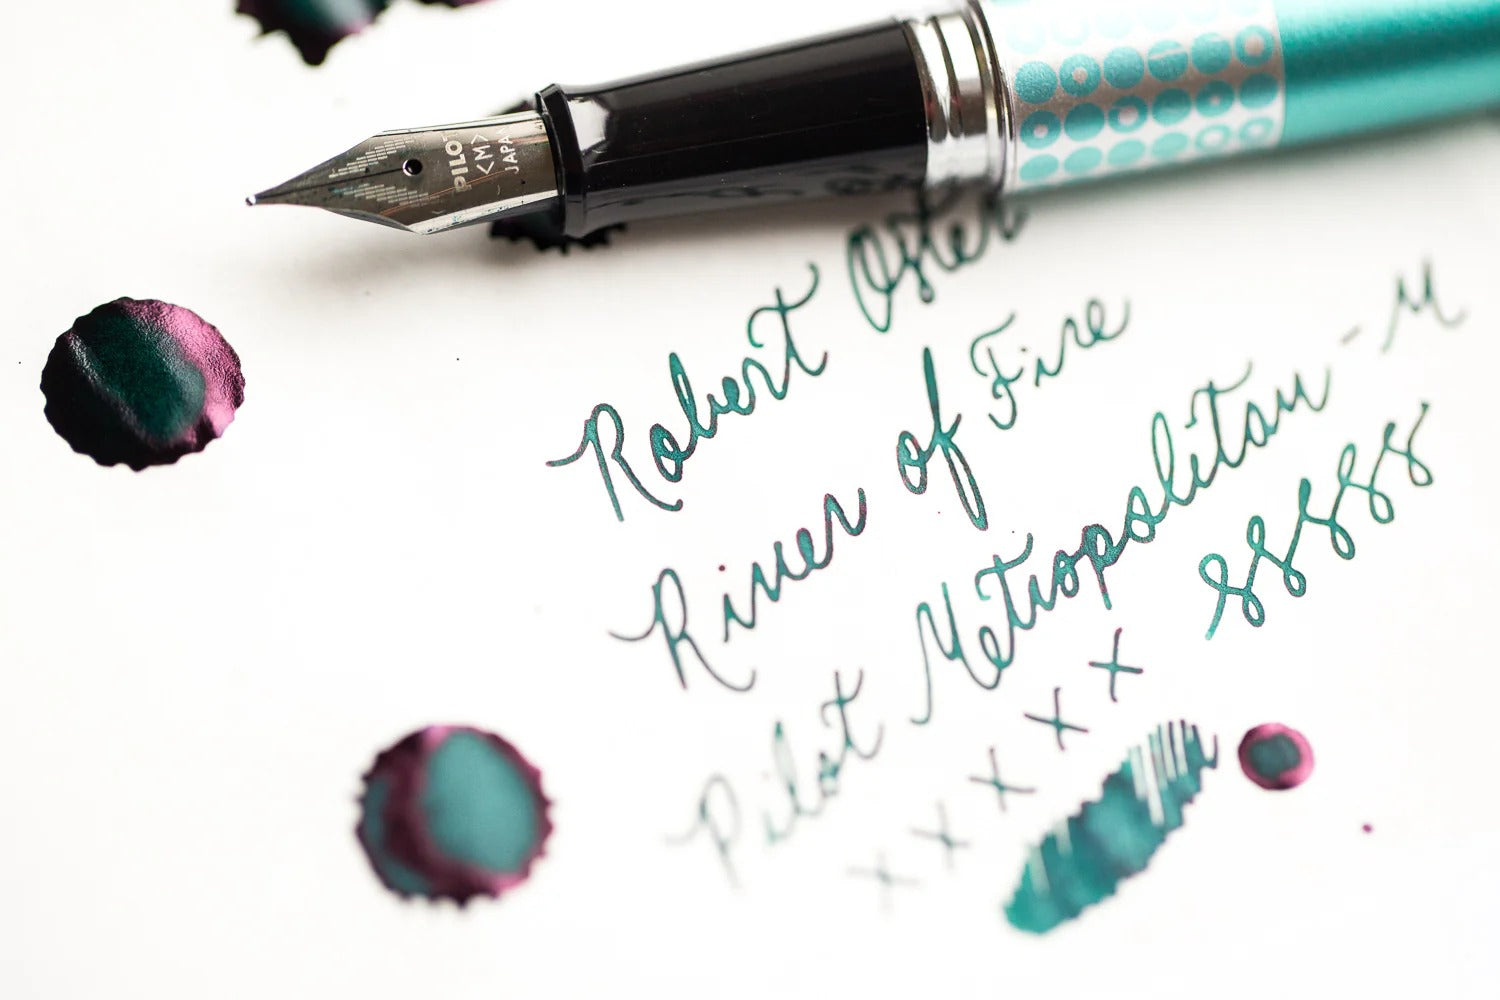 PILOT
<M>
JAPAN
Robert Oster
River of Fire
Pilot Metropolitan - M
x x x x x
8 8 8 8 8